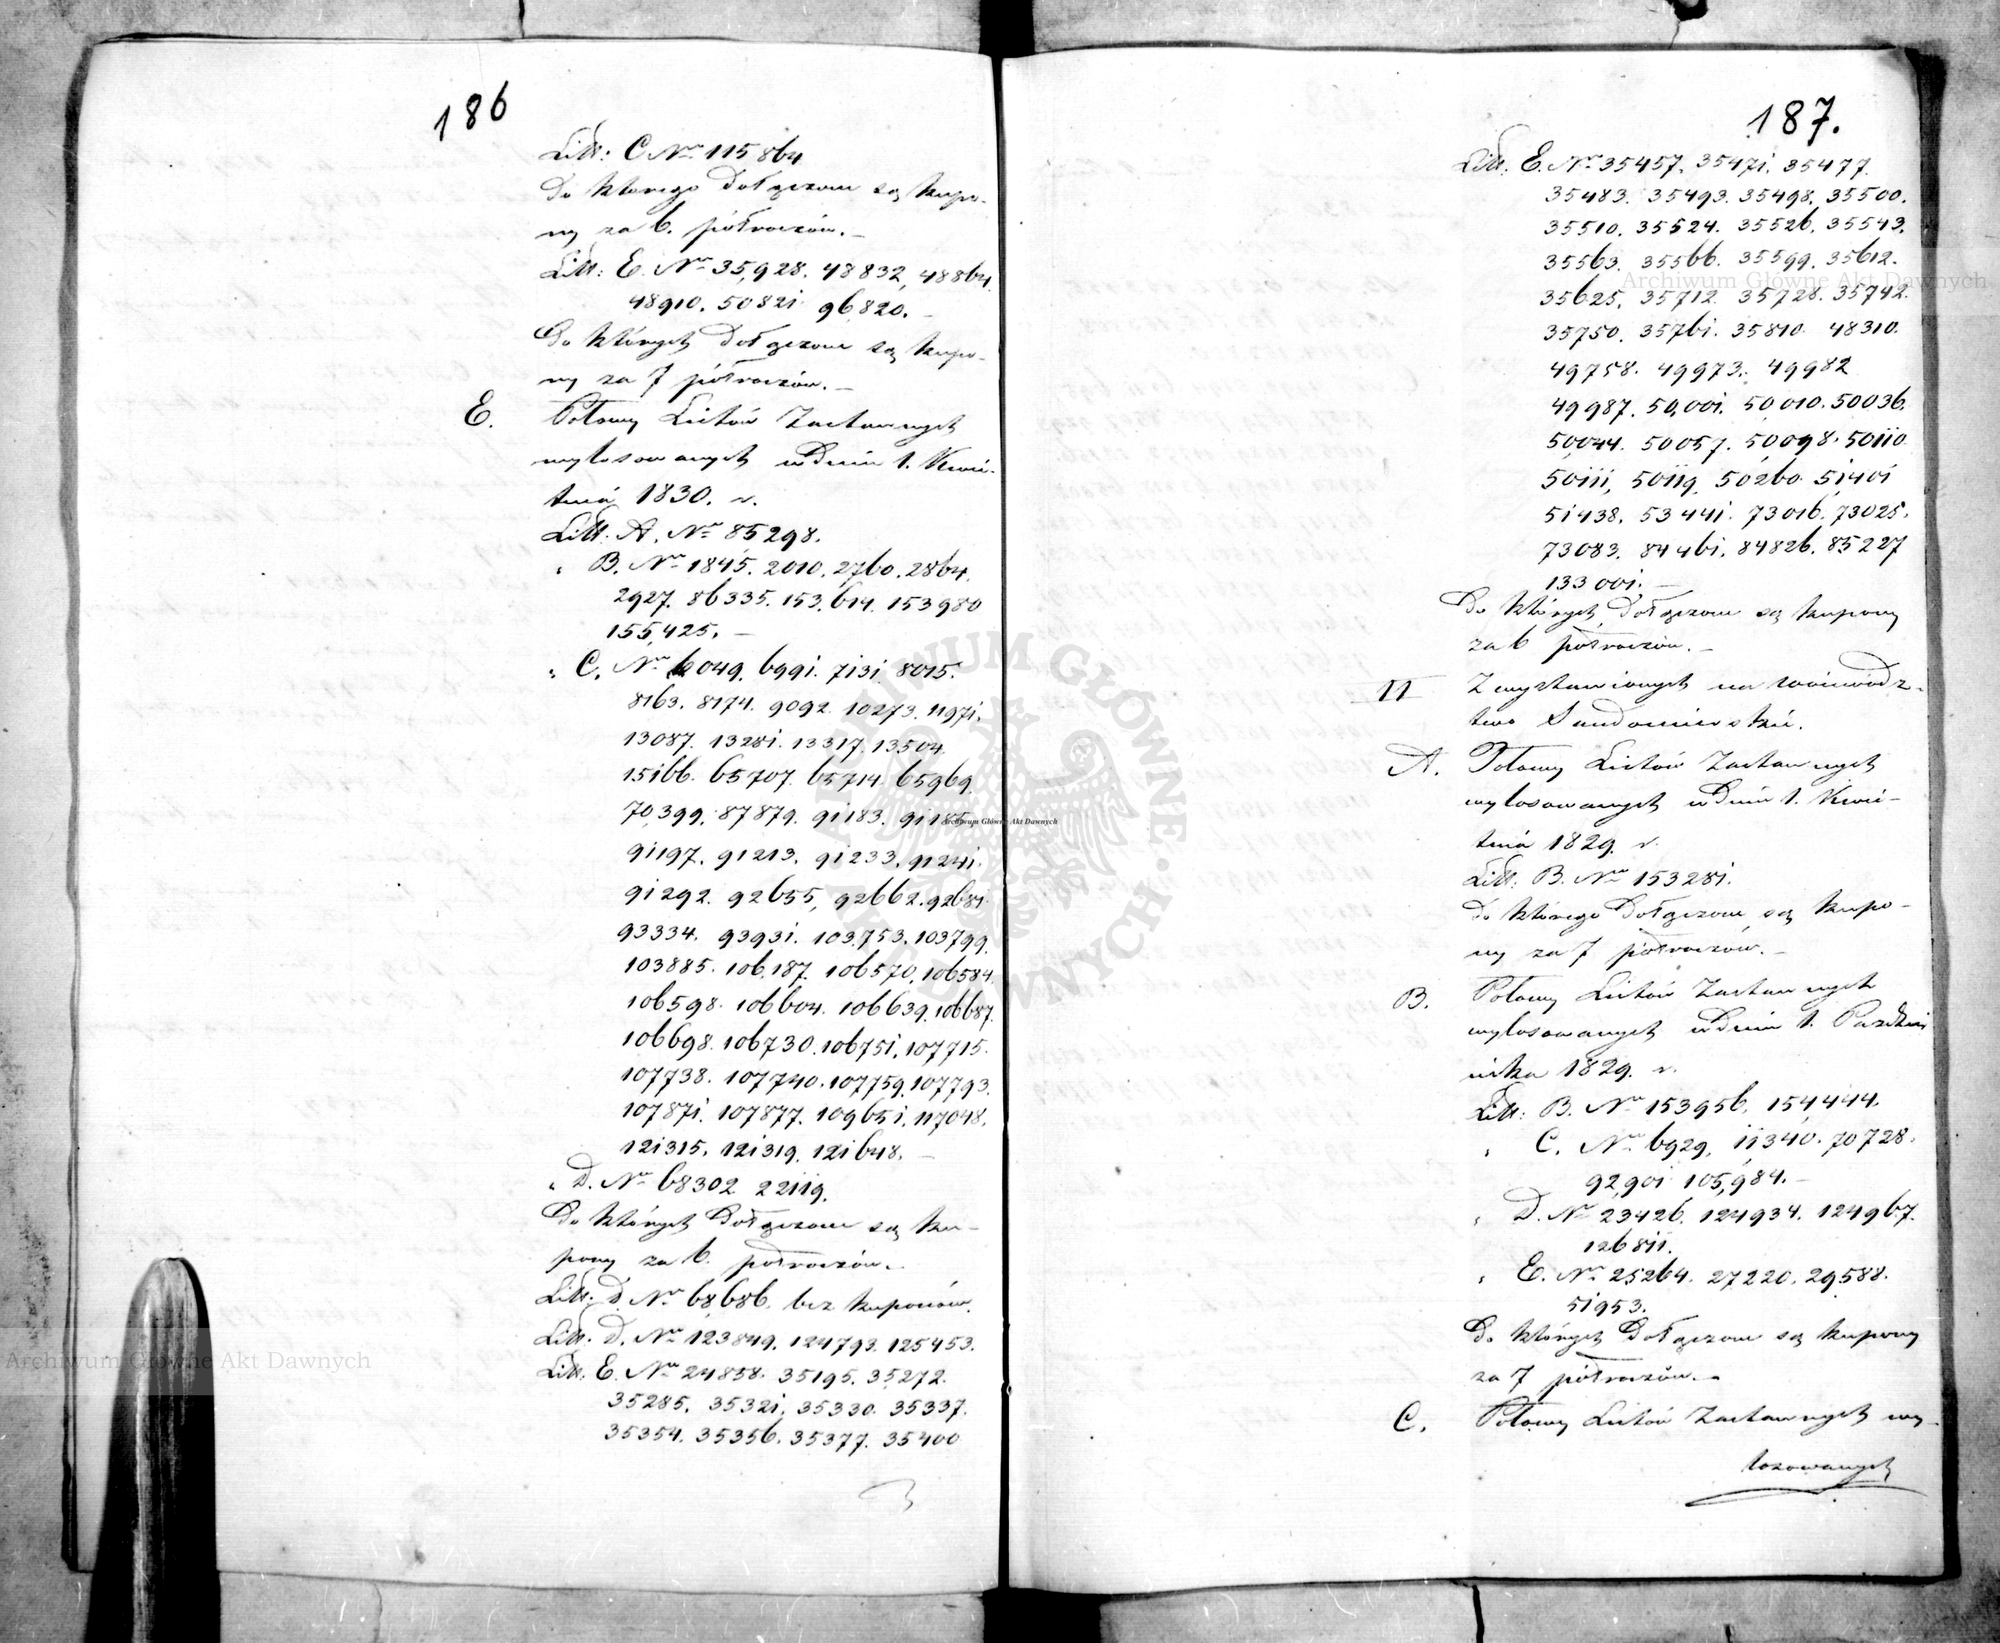 186
Litt: C Nro 115864
do ktorego dołączone są kupo-
ny za 6. półroczów. –
Litt: E. Nro 35,928. 48832, 48864.
48910. 50821 96820. –
Do których dołączone są kupo-
ny za 7 półroczów. –
E. Połowy Listów Zastawnych
wylosowanych w Dniu 1. Kwie-
tnia 1830. r.
Litt. A. Nro 85298.
" B. Nro 1845. 2010. 2760. 2864.
2927. 86335. 153,614. 153980
155,425. –
" C. Nro 6049. 6991. 7131. 8015.
8163. 8174. 9092. 10273. 11971.
13087. 13281. 13317. 13504.
15166. 65707. 65714. 65969.
70,399. 87879. 91183. 91185.
91197. 91213. 91233. 91241.
91292. 92655, 92662. 92681.
93334. 93931. 103,753. 103799.
103885. 106,187. 106570. 106584.
106598. 106604. 106639. 106687.
106698. 106730. 106751. 107715.
107738. 107740. 107759. 107793.
107871. 107877. 109651. 117048.
121315. 121319. 121648. –
" D. Nro 68302 22119.
Do których Dołączone są ku-
pony za 6. półroczów. –
Litt: D. Nro 68,686. bez kuponów.
Litt. D. Nro 123849. 124793. 125453.
Litt: E. Nro 24858. 35195. 35272.
35285. 35321. 35330. 35337.
35354. 35356. 35377. 35400
187.
Litt: E. Nro 35457. 35471. 35477.
35483. 35493. 35498. 35500.
35510. 35524. 35526. 35543.
35563. 35566. 35599. 35612.
35625. 35712. 35728. 35742.
35750. 35761. 35810. 48310.
49758. 49973. 49982
49987. 50,001. 50,010. 50036.
50,044. 50057. 50,098. 50110
50111, 50119. 50260. 51401
51438. 53441. 73016. 73025.
73083. 84461. 84826. 85227
133001. –
Do których Dołączone są kupony
za 6 półroczów. –
II Z wystawionych na wojewódz-
two Sandomierskie.
A. Połowy Listów Zastawnych
wylosowanych w Dniu 1. Kwie-
tnia 1829. r.
Litt: B. Nro 153281.
do którego Dołączone są kupo-
ny za 7 półroczów. –
B. Połowy Listów Zastawnych
wylosowanych w Dniu 1. Paździer
nika 1829. r.
Litt: B. Nro 153956. 154,444.
" C. Nro 6929. 11340. 70728.
92,901 105,984. –
" D. Nro 23,426. 124934. 124967.
126811.
" E. Nro 25264. 27220. 29588.
51953.
Do których Dołączone są kupony
za 7 półroczów. –
C. Połowy Listów Zastawnych wy-
losowanych
Archiwum Główne Akt Dawnych
Archiwum Główne Akt Dawnych
Archiwum Główne Akt Dawnych
ARCHIWUM GŁÓWNE AKT DAWNYCH